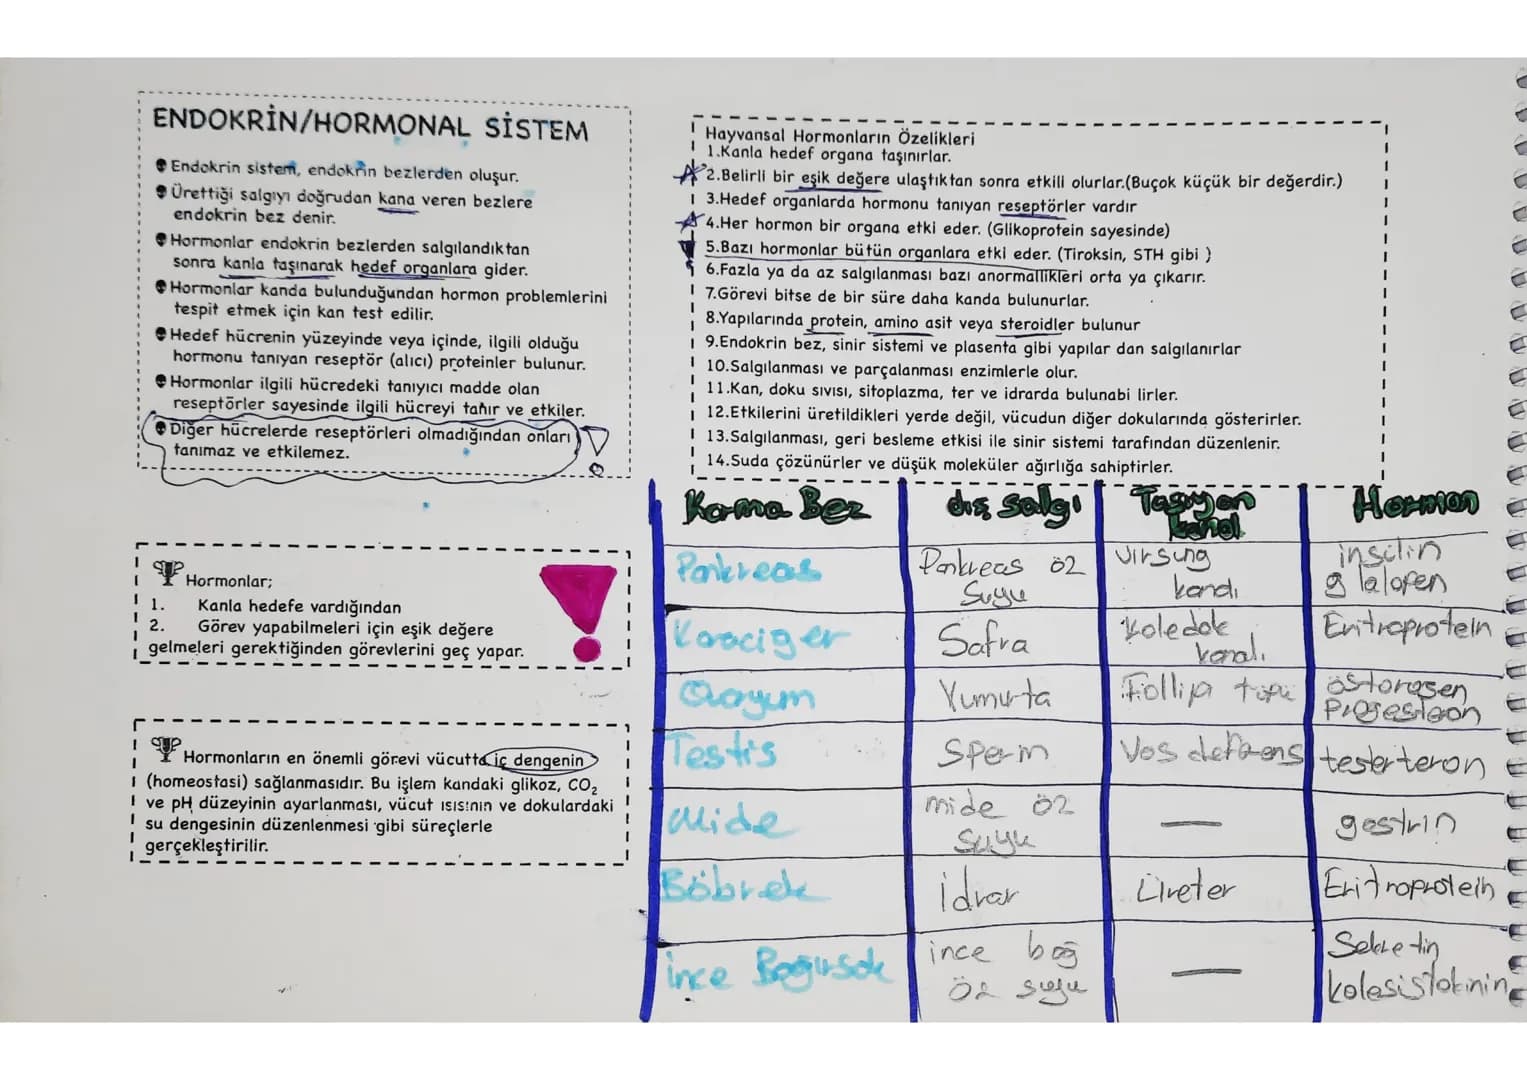 ENDOKRİN/HORMONAL SİSTEM
Endokrin sistem, endokrin bezlerden oluşur.
Ürettiği salgıyı doğrudan kana veren bezlere
endokrin bez denir.
Hormonlar endokrin bezlerden salgılandıktan
sonra kanla taşınarak hedef organlara gider.
Hormonlar kanda bulunduğundan hormon problemlerini
tespit etmek için kan test edilir.
Hedef hücrenin yüzeyinde veya içinde, ilgili olduğu
hormonu tanıyan reseptör (alıcı) proteinler bulunur.
Hormonlar ilgili hücredeki tanıyıcı madde olan
reseptörler sayesinde ilgili hücreyi tanır ve etkiler.
Diğer hücrelerde reseptörleri olmadığından onları
tanımaz ve etkilemez.
Hormonlar;
1. Kanla hedefe vardığından
2. Görev yapabilmeleri için eşik değere
gelmeleri gerektiğinden görevlerini geç yapar.
Hormonların en önemli görevi vücutta iç dengenin
(homeostasi) sağlanmasıdır. Bu işlem kandaki glikoz, CO₂
ve pH düzeyinin ayarlanması, vücut ısısının ve dokulardaki
su dengesinin düzenlenmesi gibi süreçlerle
gerçekleştirilir.
Hayvansal Hormonların Özelikleri
1.Kanla hedef organa taşınırlar.
2.Belirli bir eşik değere ulaştıktan sonra etkili olurlar.(Buçok küçük bir değerdir.)
3.Hedef organlarda hormonu tanıyan reseptörler vardır
4.Her hormon bir organa etki eder. (Glikoprotein sayesinde)
5.Bazı hormonlar bütün organlara etki eder. (Tiroksin, STH gibi )
6.Fazla ya da az salgılanması bazı anormallikleri orta ya çıkarır.
7.Görevi bitse de bir süre daha kanda bulunurlar.
8.Yapılarında protein, amino asit veya steroidler bulunur
9.Endokrin bez, sinir sistemi ve plasenta gibi yapılar dan salgılanırlar
10.Salgılanması ve parçalanması enzimlerle olur.
11.Kan, doku sıvısı, sitoplazma, ter ve idrarda bulunabi lirler.
12.Etkilerini üretildikleri yerde değil, vücudun diğer dokularında gösterirler.
13.Salgılanması, geri besleme etkisi ile sinir sistemi tarafından düzenlenir.
14.Suda çözünürler ve düşük moleküler ağırlığa sahiptirler.
Karma Bez dış salgı Taşıyan kanal Hormon
Pankreas Pankreas öz suyu Virsung kanalı insülin
Karaciğer Safra Koledok kanalı Eritroprotein
Ovaryum Yumurta
Testis Sperm Vas deferens
Mide mide öz suyu — gastrin
Böbrek İdrar Üreter Eritroprotein
İnce Bağırsak ince bağ öz suyu — Sekretin kolesistokinin